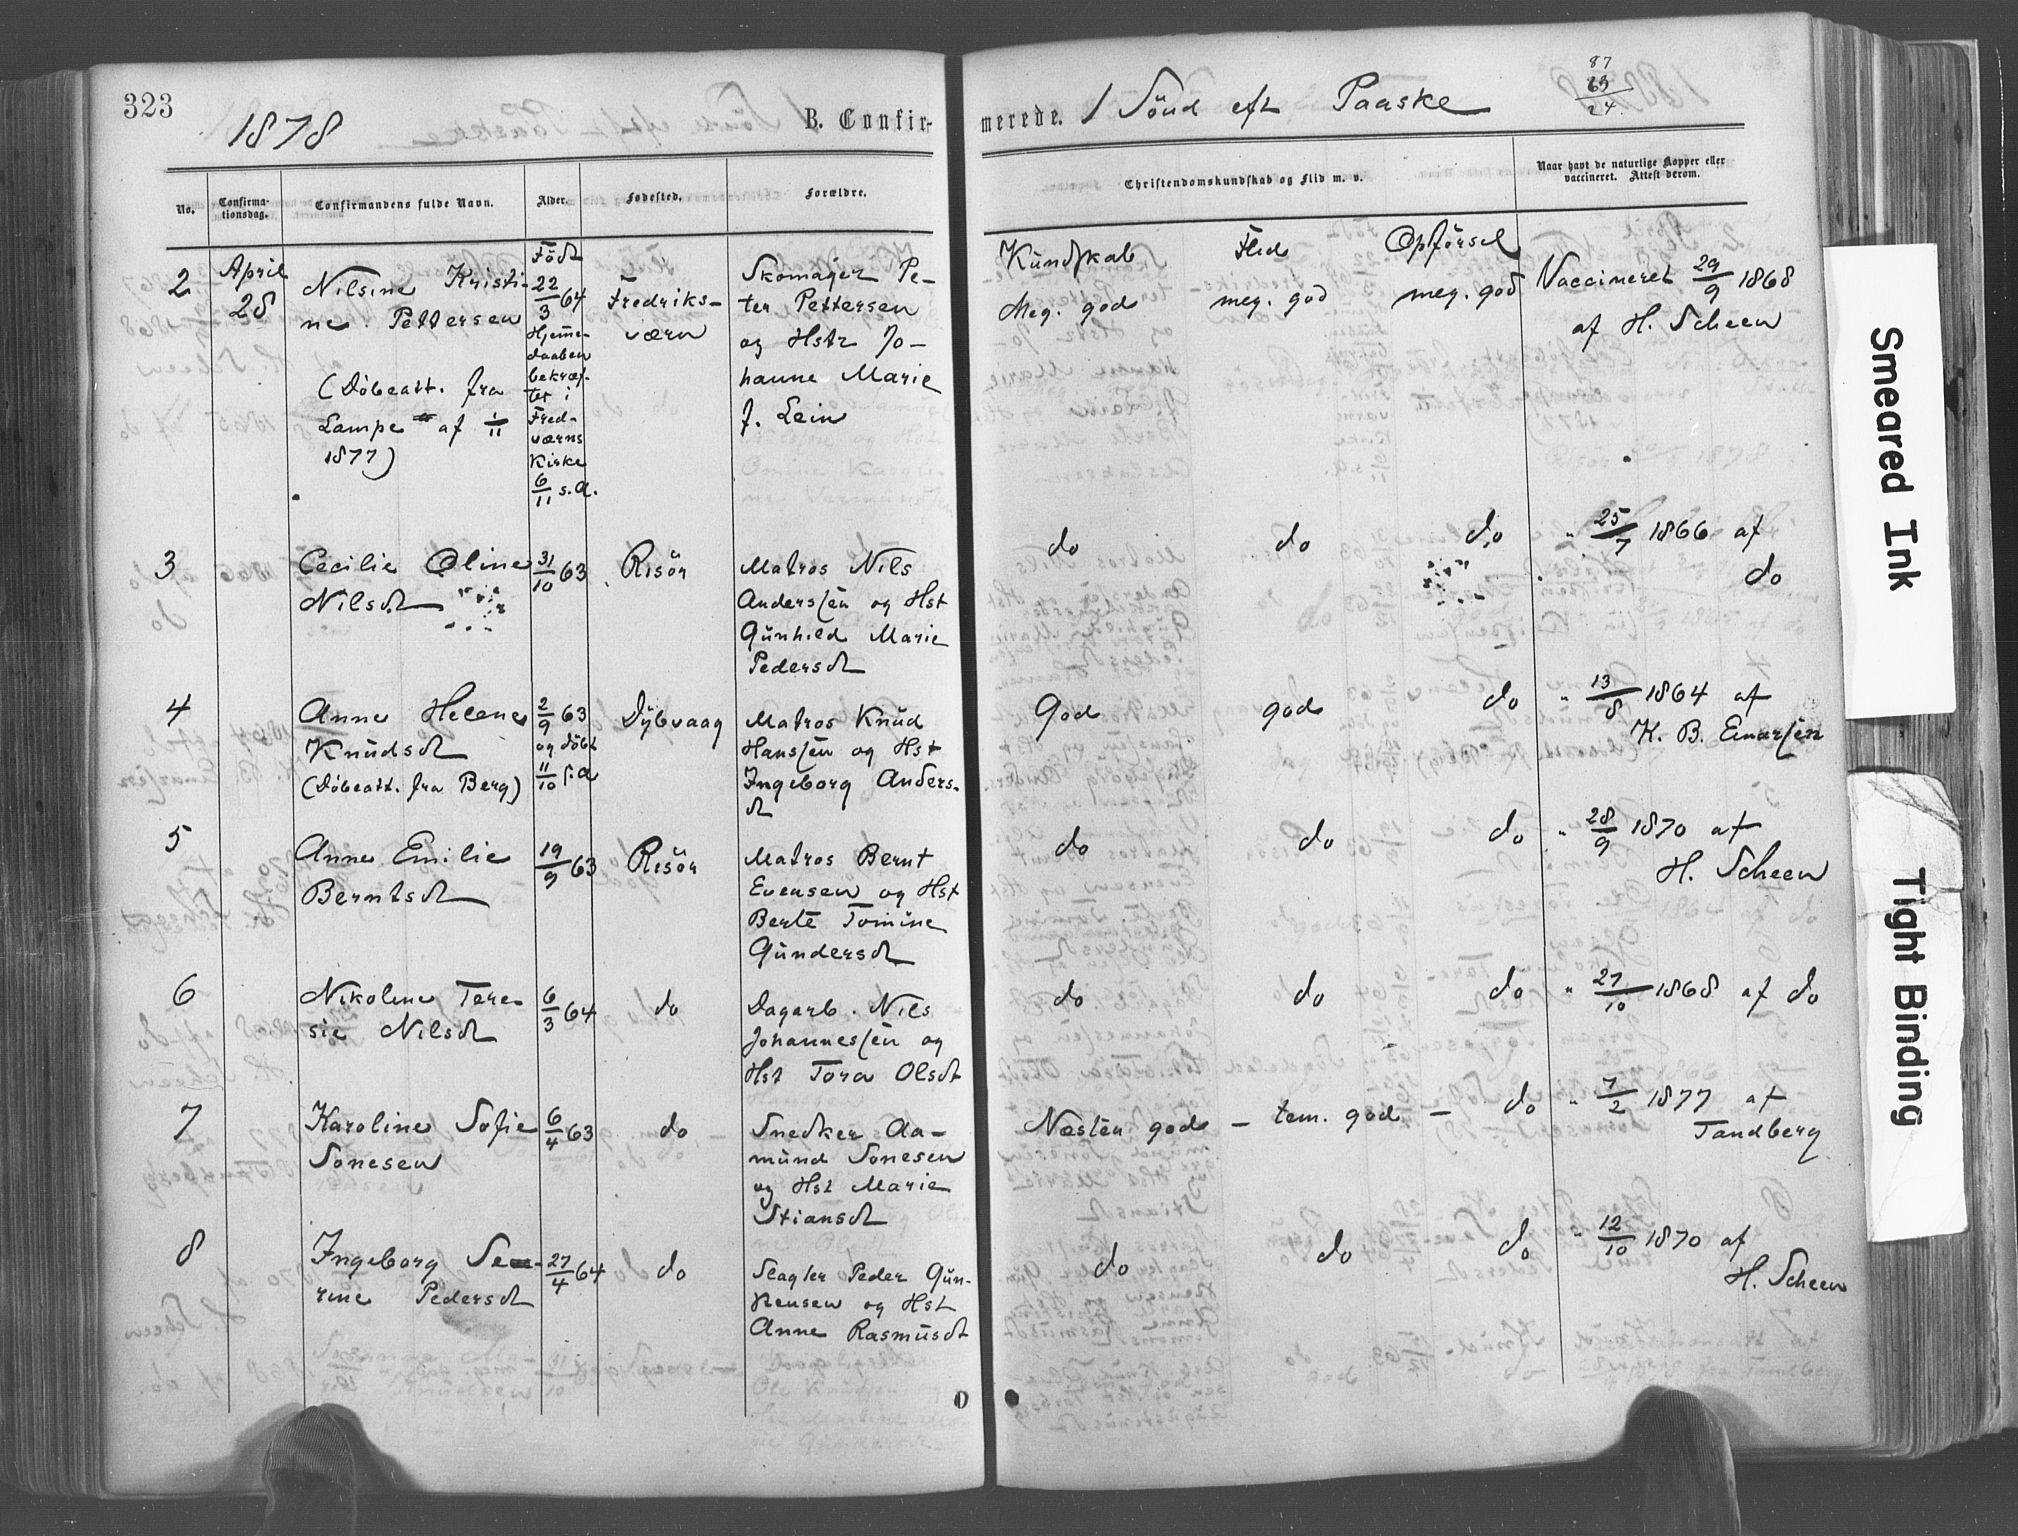 323
1878
B. Confir-
merede.
1 Sönd eft Paaske
87
63
24
No.
Confirma-
tionsdag.
Confirmandens fulde Navn.
Alder.
Fødested.
Forældre.
Christendomskundskab og Flid m. v.
Naar havt de naturlige Kopper eller
vaccineret. Attest derom.
2
April
28
Nilsine Kristi-
ne Pettersen
(Döbeatt. fra
Lampe af 1/11
1877)
Född
22/3 64
Hjemme-
daaben
bekræf-
tet i
Fred-
værns
Kirke
6/11 s.a.
Fredriks-
værn
Skomager Pe-
ter Pettersen
og Hstr Jo-
hanne Marie
f. Lein
Kundskab
Meg. god
Flid
meg. god
Opförsel
meg. god
Vaccineret 29/9 1868
af H. Scheen
3
Cecilie Oline
Nilsdt
31/10 63
Risör
Matros Nils
Anderssen og Hst
Gunhild Marie
Pedersdt
do
do
do
" 25/7 1866 af
do
4
Anne Helene
Knudsdt
(Döbeatt. fra Berg)
2/9 63
og döbt
11/10 s.a
Dybvaag
Matros Knud
Hanssen og Hst
Ingeborg Anders-
dt
God
god
do
" 13/8 1864 af
K. B. Einarsen
5
Anne Emilie
Berntsdt
19/9 63
Risör
Matros Bernt
Evensen og Hst
Berte Tomine
Gundersdt
do
do
do
" 28/9 1870 af
H. Scheen
6
Nikoline Tere-
sie Nilsdt
6/3 64
do
Dagarb. Nils
Johannessen og
Hst Tora Olsdt
do
do
do
" 27/10 1868 af do
7
Karoline Sofie
Sonesen
6/4 63
do
Snedker Aa-
mund Sonesen
og Hst Marie
Stiansdt
Næsten god -
tem. god -
do
" 7/2 1877 af
Tandberg
8
Ingeborg Se-
rine Pedersdt
27/4 64
do
Slagter Peder Gun-
Anne Rasmusdt
do
do
do
" 12/10 1870 af
H. Scheen
Smeared Ink
Tight Binding